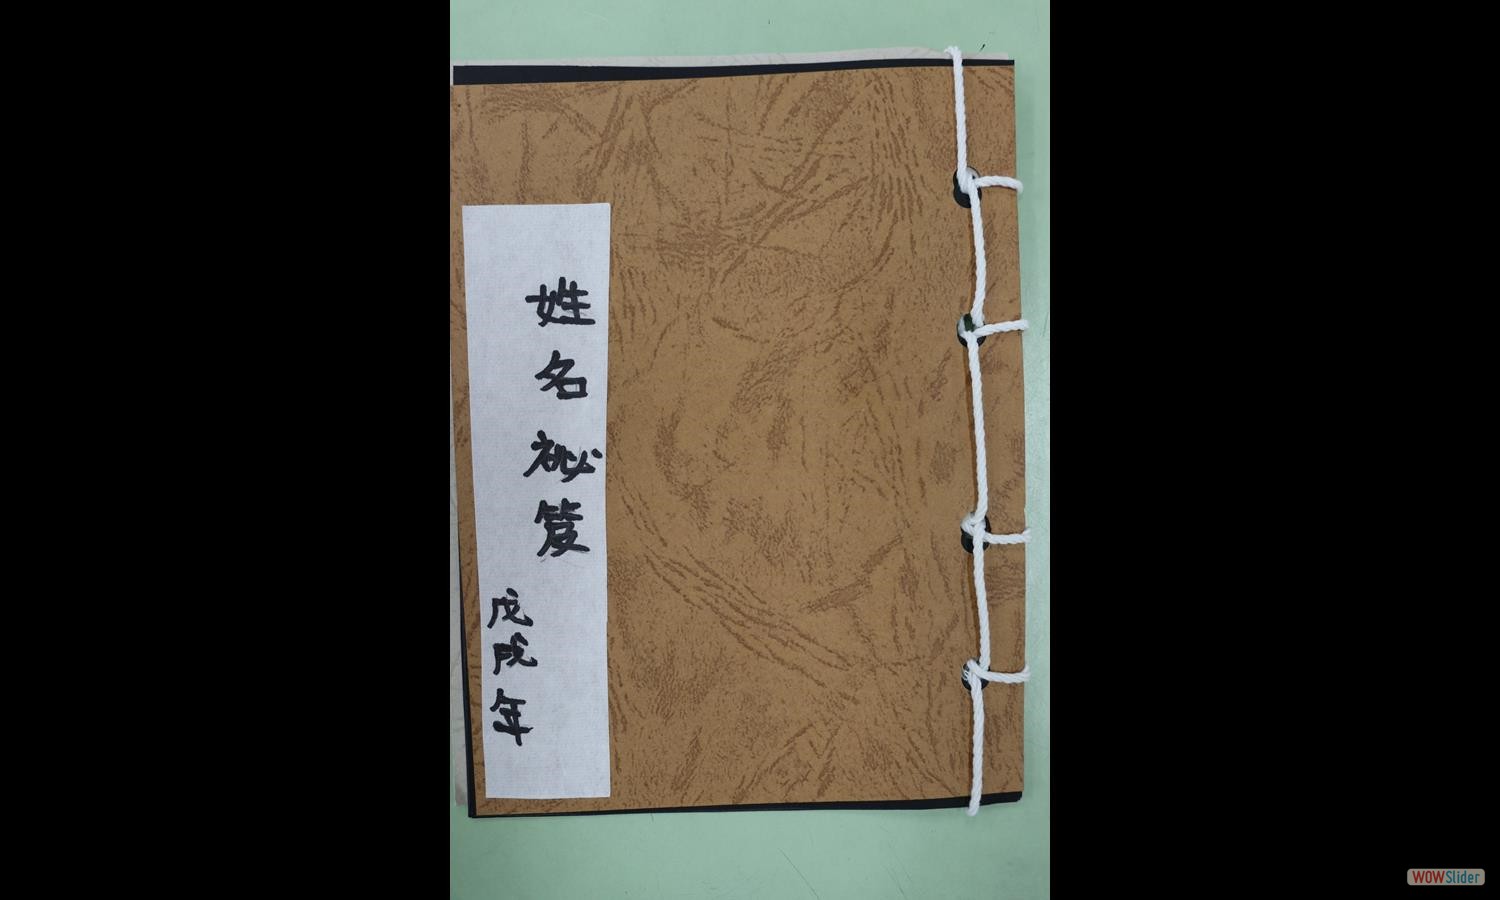 姓名秘笈
戊戌年
WOWSlider